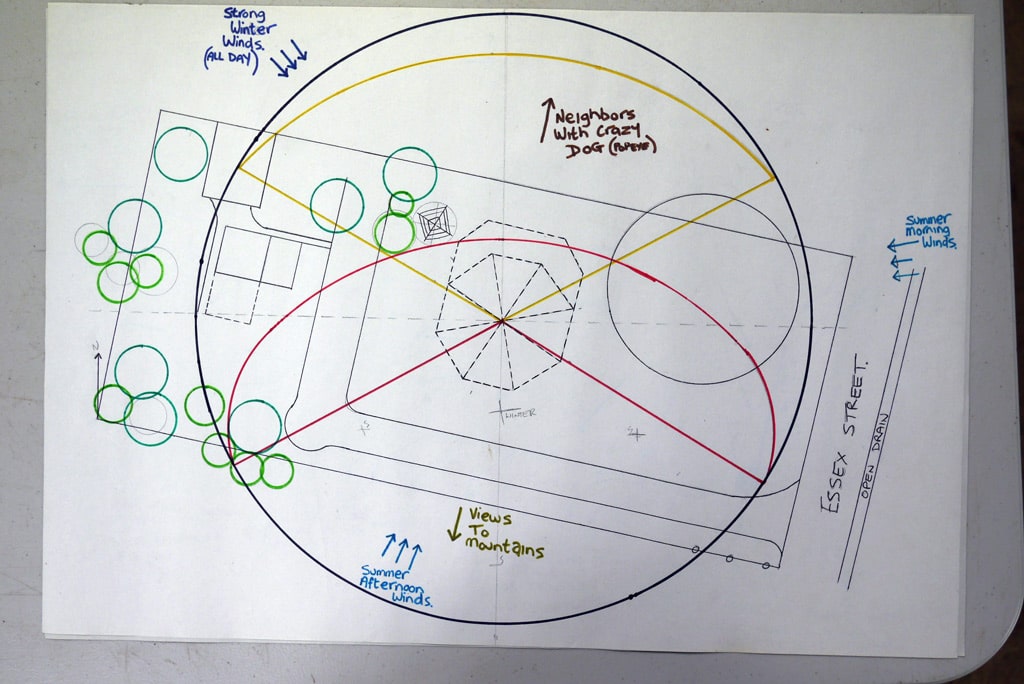 Strong
Winter
Winds.
(ALL DAY)
Neighbors
With Crazy
DOG (POPEYE)
Summer
morning
Winds.
N
WINTER
S
S
ESSEX STREET.
OPEN DRAIN
Views
To
mountains
S
Summer
Afternoon
Winds.